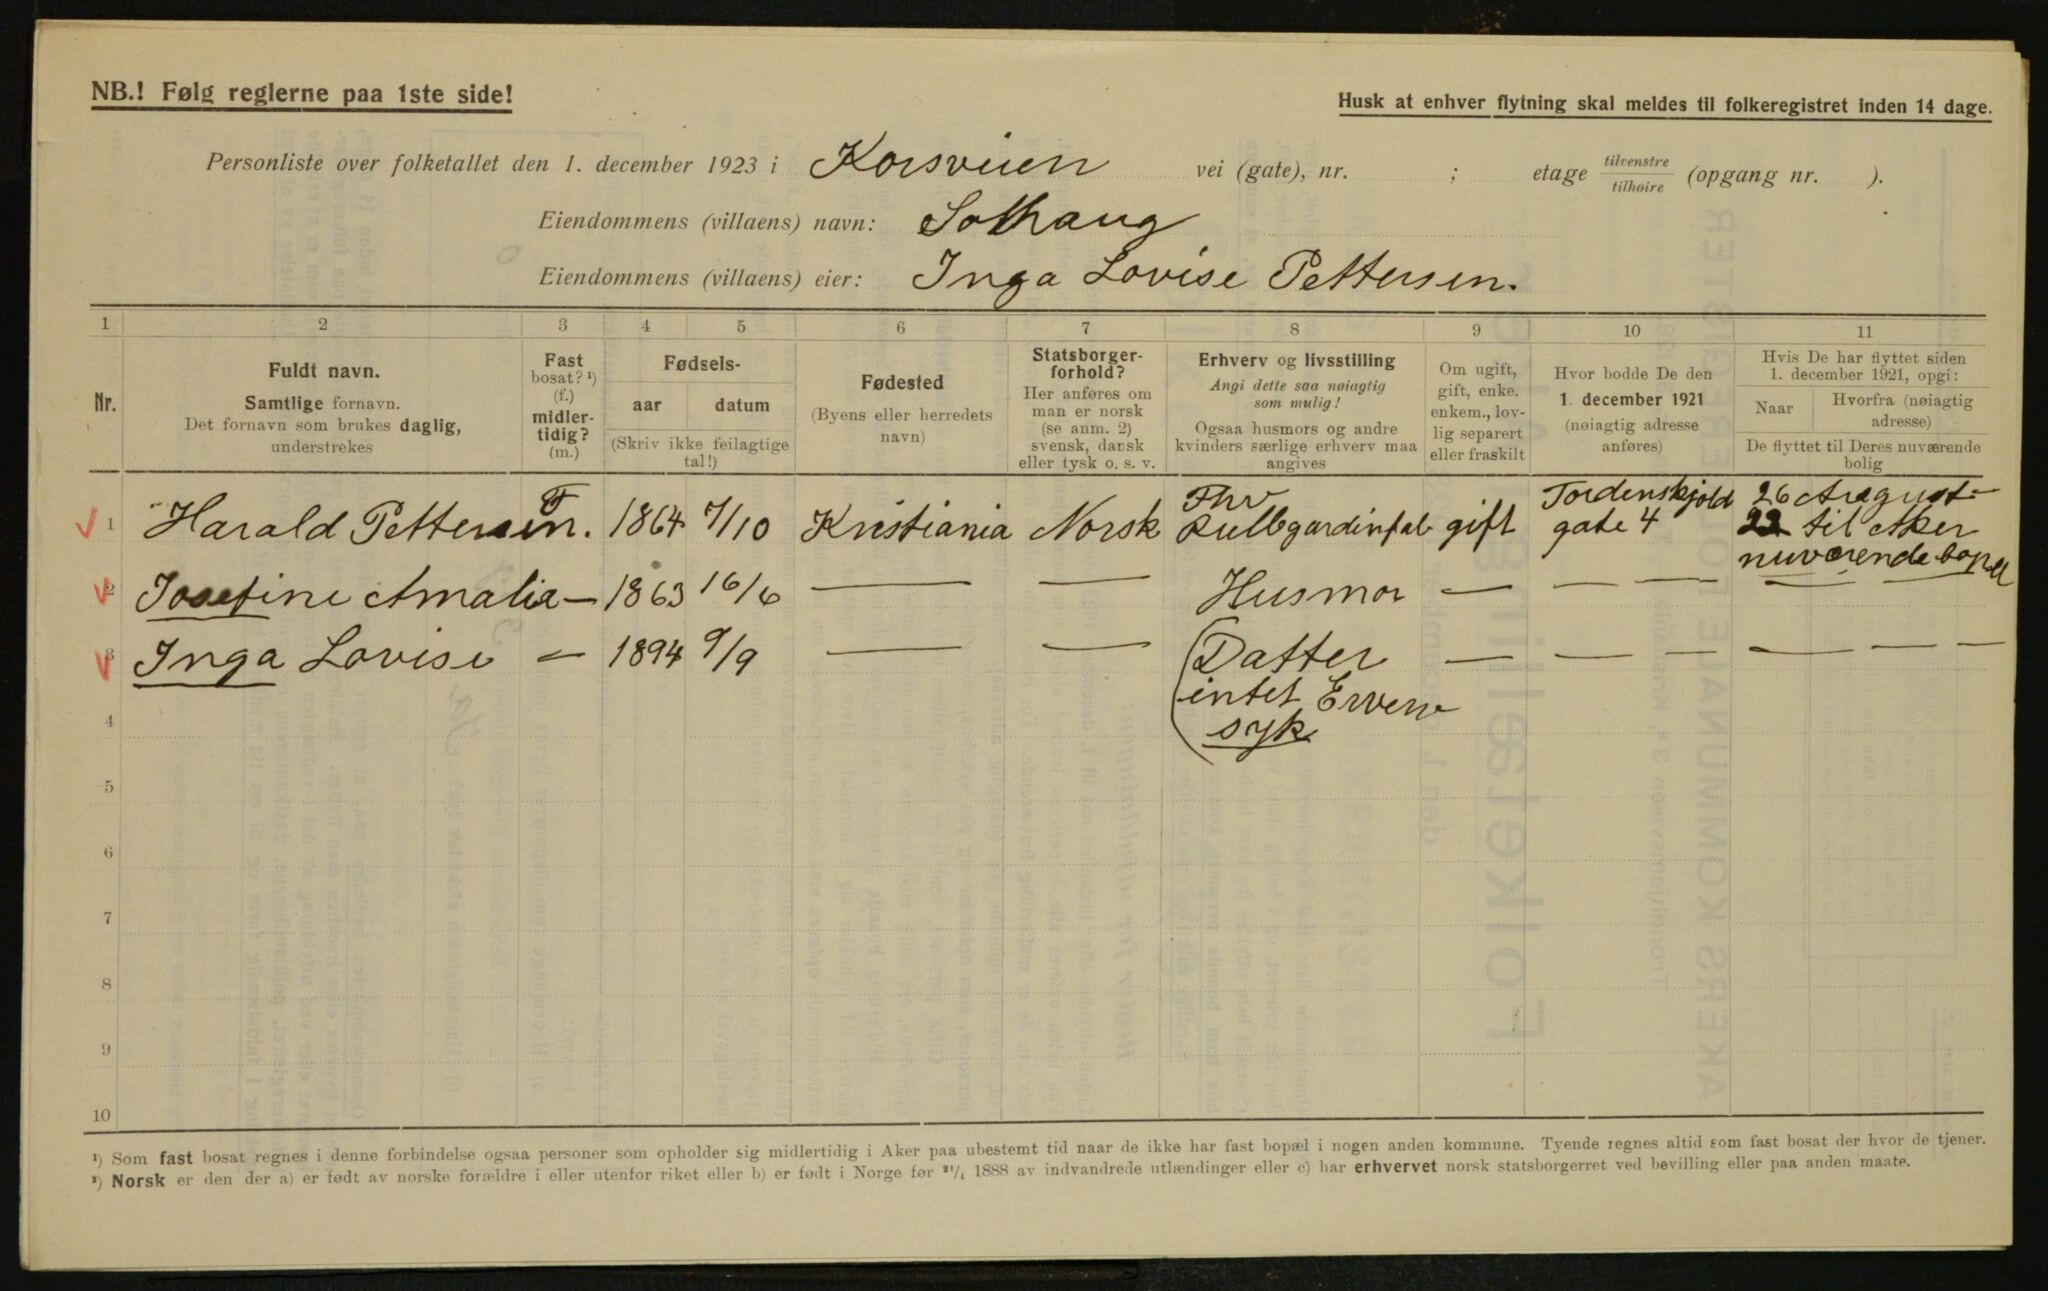 NB.! Følg reglerne paa 1ste side!
Husk at enhver flytning skal meldes til folkeregistret inden 14 dage.
Personliste over folketallet den 1. december 1923 i Korsveien vei (gate), nr. ; etage tilvenstre / tilhøire (opgang nr. ).
Eiendommens (villaens) navn: Solhaug
Eiendommens (villaens) eier: Inga Lovise Pettersen.
1 2 3 4 5 6 7 8 9 10 11
Nr.
Fuldt navn.
Samtlige fornavn.
Det fornavn som brukes daglig,
understrekes
Fast
bosat? ¹)
(f.)
midler-
tidig?
(m.)
Fødsels-
aar datum
(Skriv ikke feilagtige
tal!)
Fødested
(Byens eller herredets
navn)
Statsborger-
forhold?
Her anføres om
man er norsk
(se anm. 2)
svensk, dansk
eller tysk o. s. v.
Erhverv og livsstilling
Angi dette saa nøiagtig
som mulig!
Ogsaa husmors og andre
kvinders særlige erhverv maa
angives
Om ugift,
gift, enke.
enkem., lov-
lig separert
eller fraskilt
Hvor bodde De den
1. december 1921
(nøiagtig adresse
anføres)
Hvis De har flyttet siden
1. december 1921, opgi:
Naar
Hvorfra (nøiagtig
adresse)
De flyttet til Deres nuværende
bolig
1 Harald Pettersen. F 1864 7/10 Kristiania Norsk Fhv gift Tordenskjold
gate 4
26 August
22 til Aker
nuværende bopæl
2 Josefine Amalia — 1863 16/6 — — Husmor — — — — — —
3 Inga Lovise — 1894 9/9 — — (Datter — — — — — — —
intet
syk
4
5
6
7
8
9
10
¹) Som fast bosat regnes i denne forbindelse ogsaa personer som opholder sig midlertidig i Aker paa ubestemt tid naar de ikke har fast bopæl i nogen anden kommune. Tyende regnes altid som fast bosat der hvor de tjener.
²) Norsk er den der a) er født av norske forældre i eller utenfor riket eller b) er født i Norge før ²¹/₄ 1888 av indvandrede utlændinger eller c) har erhvervet norsk statsborgerret ved bevilling eller paa anden maate.